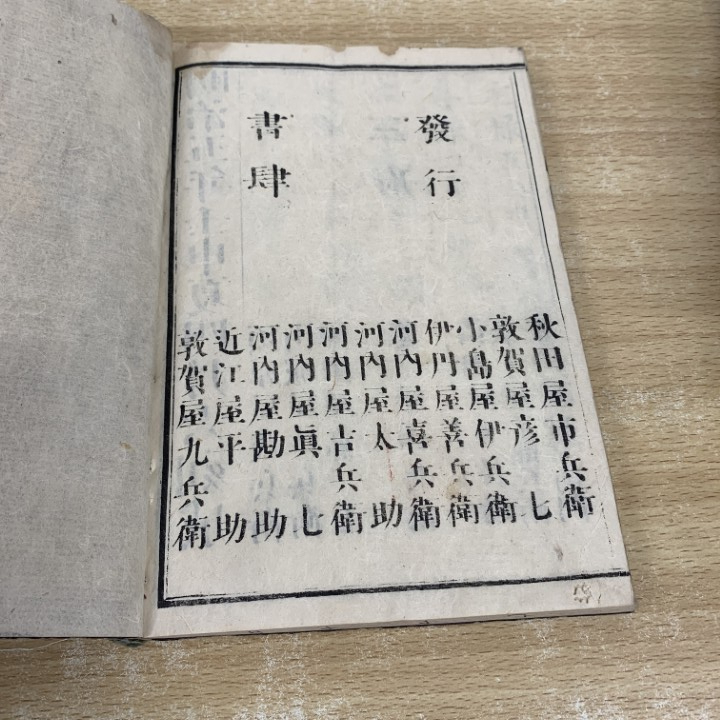 發行
書肆
秋田屋市兵衛
敦賀屋彦七
小島屋伊兵衛
伊丹屋善兵衛
河内屋喜兵衛
河内屋太助
河内屋吉兵衛
河内屋眞七
河内屋勘助
近江屋平助
敦賀屋九兵衛